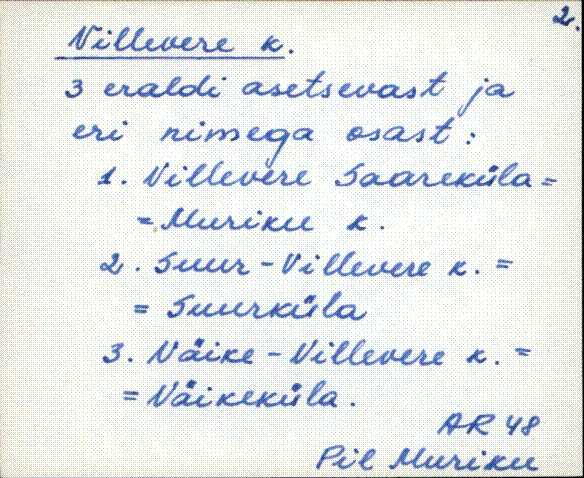 2.
Villevere k.
3 eraldi asetsevast ja
eri nimega osast:
1. Villevere Saareküla =
= Muriku k.
2. Suur-Villevere k. =
= Suurküla
3. Väike-Villevere k. =
= Väikeküla.
AR 48
Pil Muriku